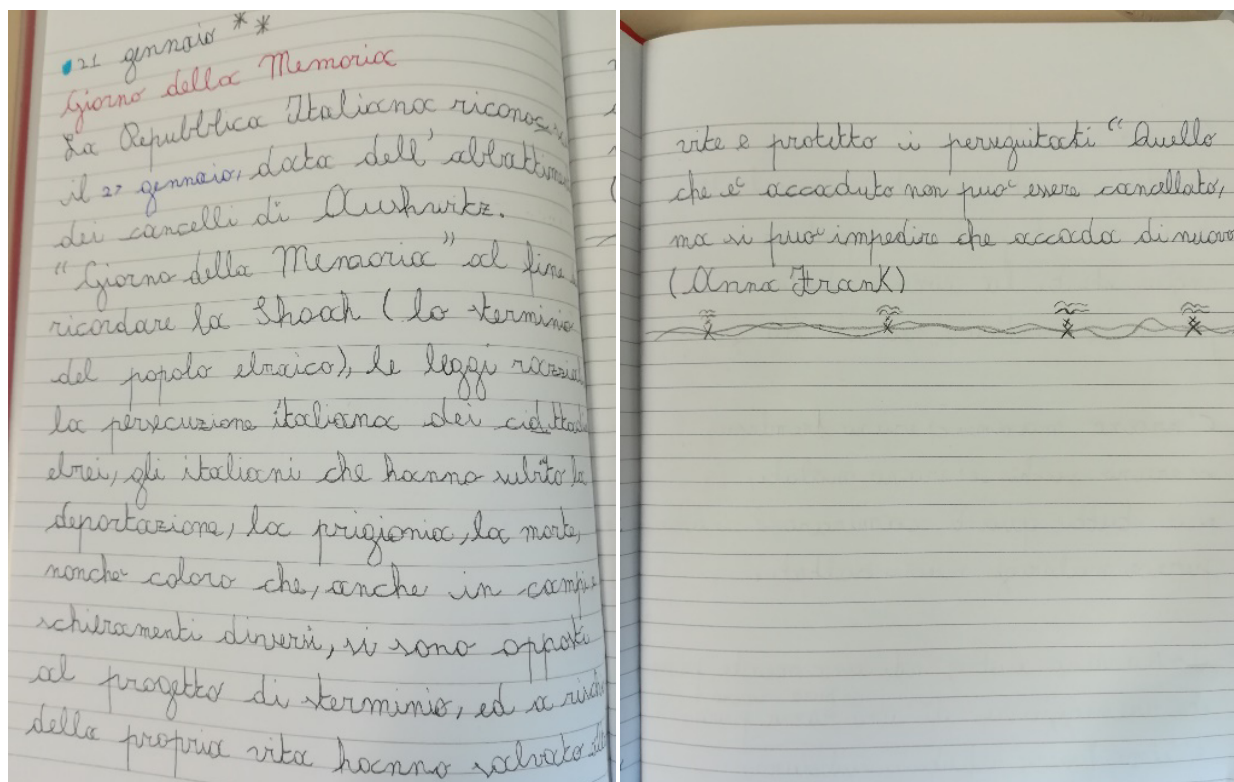 21 gennaio **
Giorno della Memoria
La Repubblica Italiana riconosce
il 27 gennaio, data dell'abbattimen
dei cancelli di Aushwitz.
"Giorno della Memoria" al fine
ricordare la Shoah (lo sterminio
del popolo ebraico), le leggi razzial
la persecuzione italiana dei cidttad
ebrei, gli italiani che hanno subito la
deportazione, la prigionia, la morte,
nonche' coloro che, anche in campi e
schieramenti diversi, si sono opposti
al progetto di sterminio, ed a rischi
della propria vita hanno salvato
vite e protetto i perseguitati "Quello
che e' accaduto non puo' essere cancellato,
ma si puo' impedire che accada di nuovo
(Anna Frank)